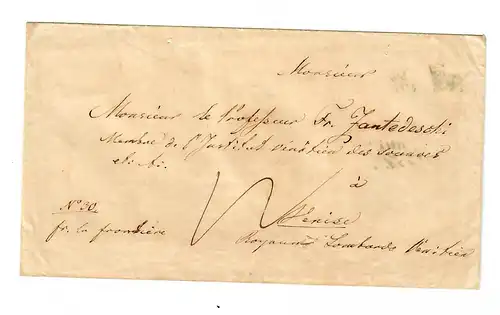 Monsieur
Monsieur le Professeur Fr. Zantedeschi
Membre de l'Institut vénitien des sciences
et. et.
à
Vénise
Royaume Lombardo Vénitien
N° 30.
fr. la frontière